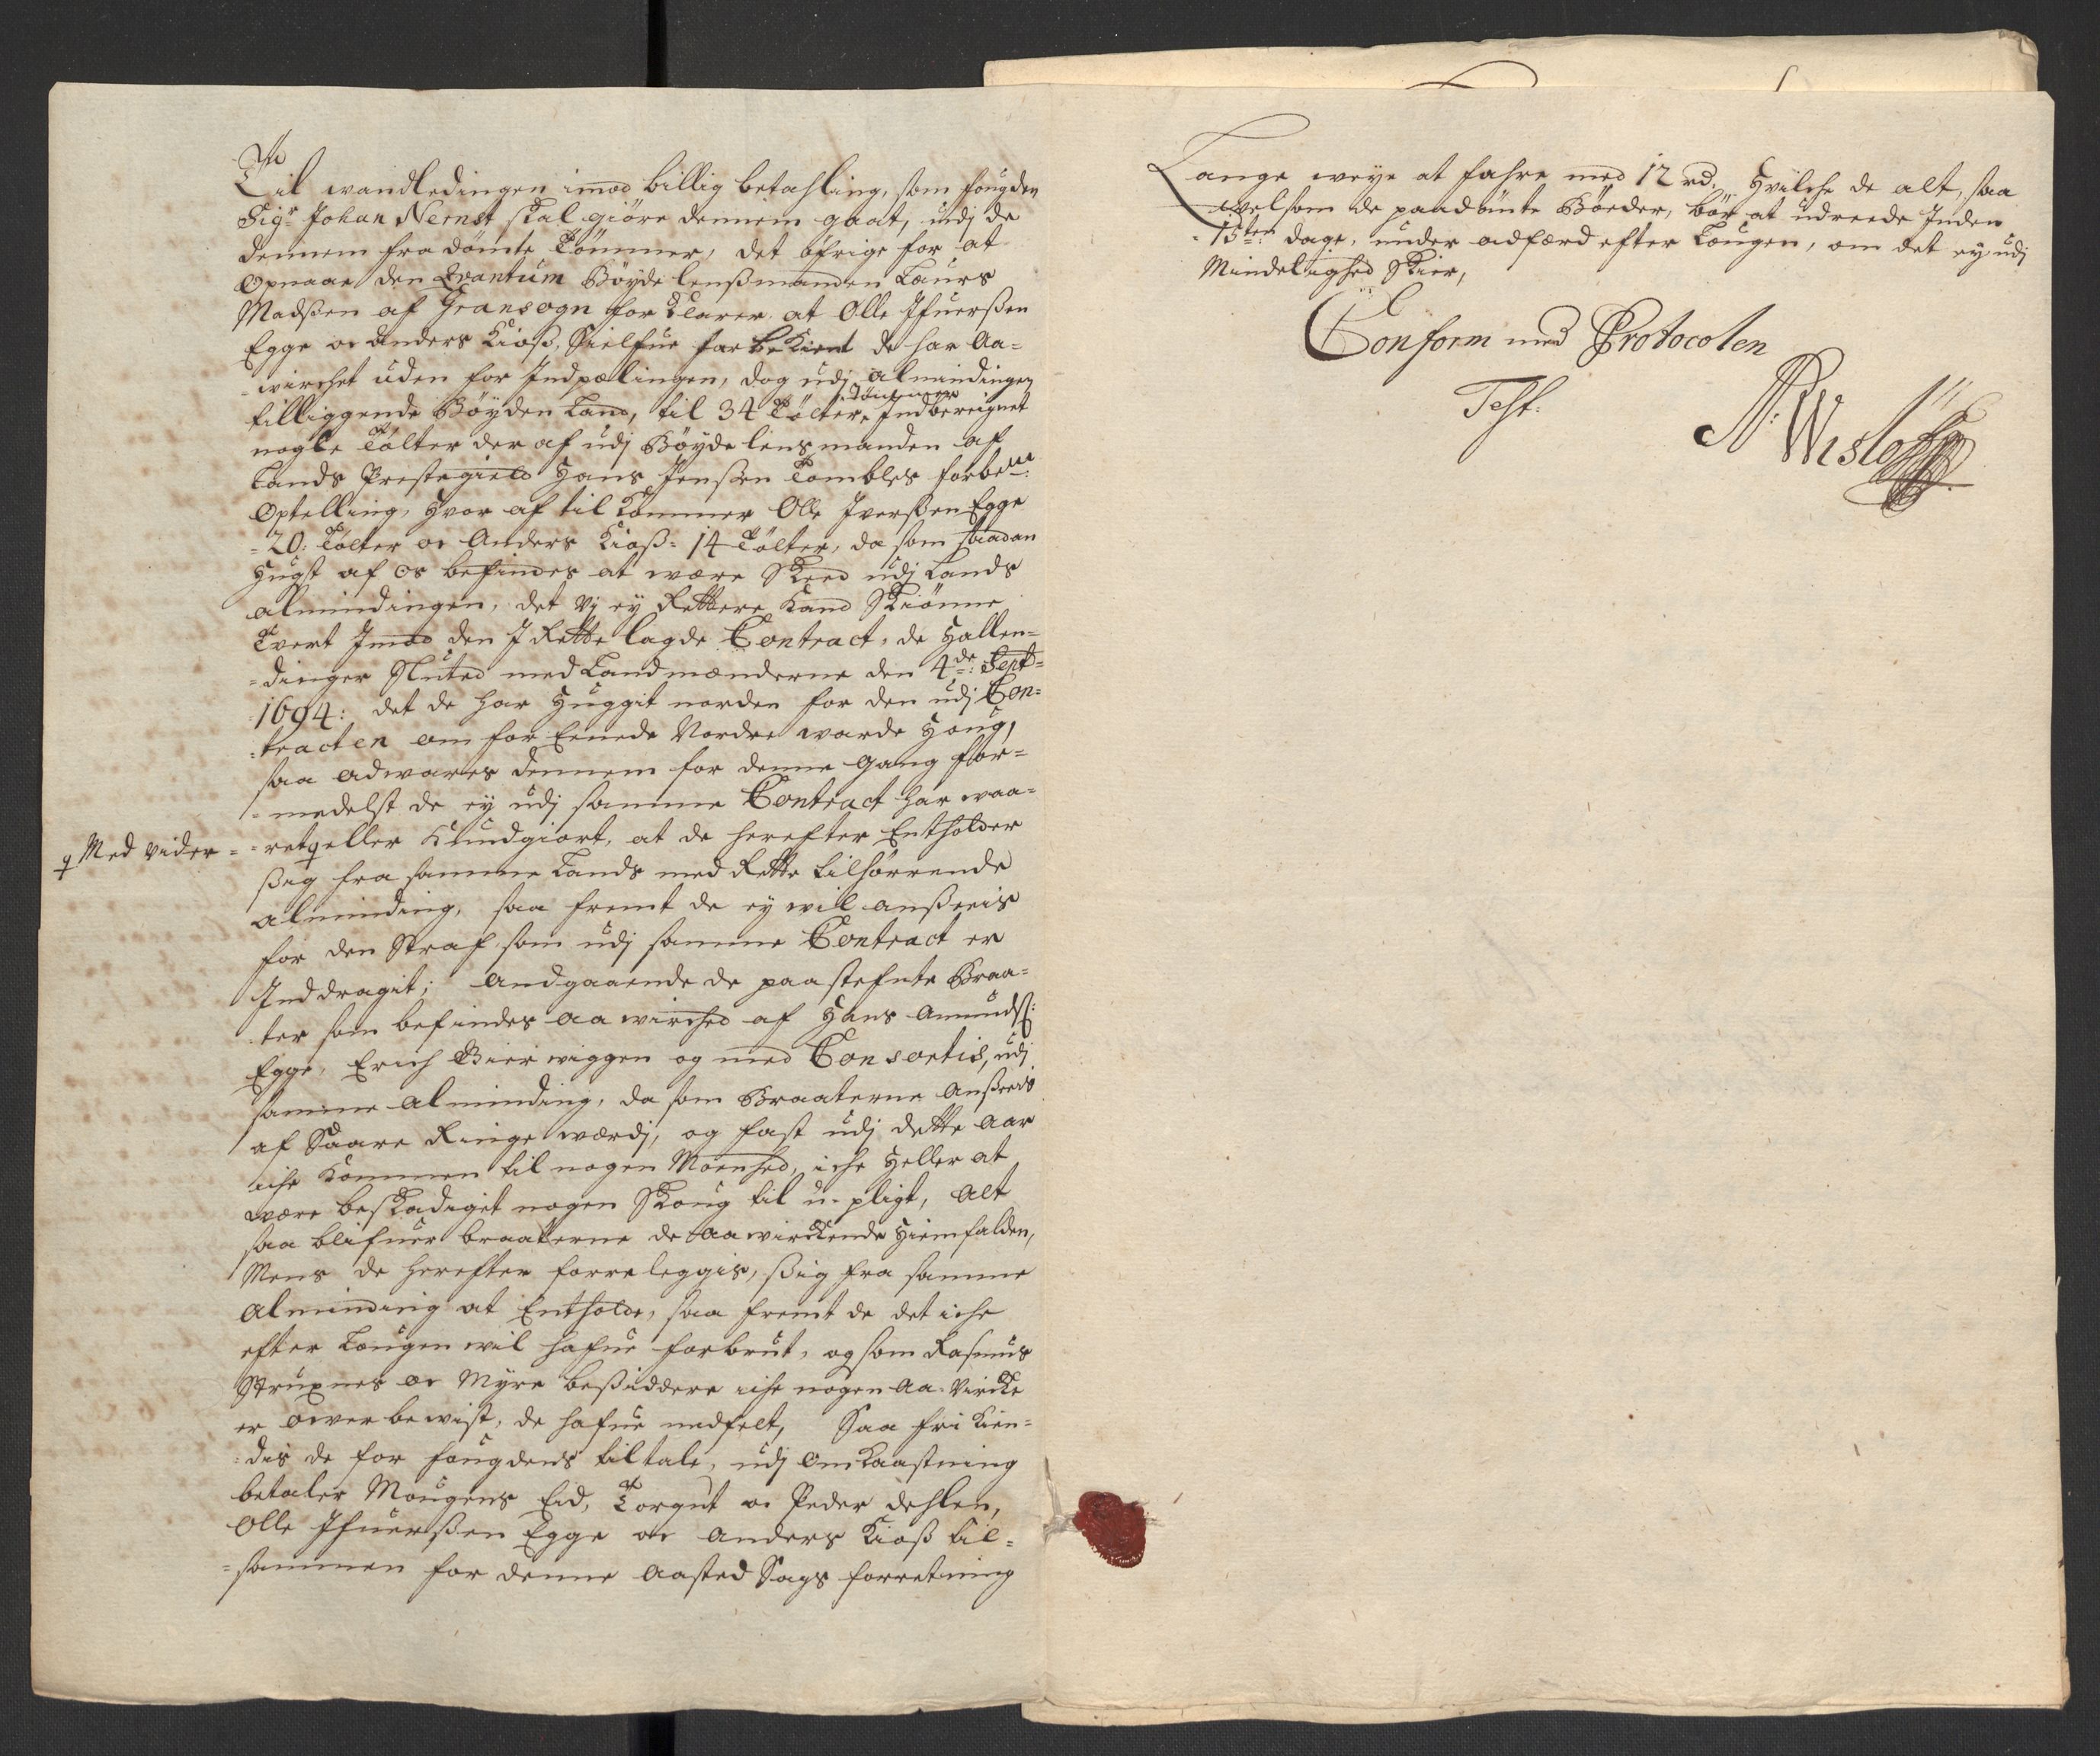 Til vandledingen imod billig betahling, som fougden
Sigr Johan Nernst skal giöre dennem gaat, udj de
dennem fradömte Tömmer, det öfrige for at
Opnaae den Qvantum Böyde lenßmanden Laurs
Madßen af Gransogn for Klarer. at Olle Ifuerßen
Egge oc Anders Kioß, Sielfue har be Kient de har Aa=
=wirchet uden for Indpælingen, dog udj almindingen
tilliggende Böyden Land, til 34 Tölter, Indbereignet
nogle Tölter der af udj Böyde lens manden af
Lands Prestegield Hans Jenßen Tombles forbem:
Optelling, Hvor af til Kommer Olle Iverßen Egge
=20: Tölter oc Anders Kioß= 14 Tölter, da som saadan
Hugst af os befindes at were Skeed udj Lands
almindingen, det Vj ey Rettere Kand Skiönne
Tvert Imod den I Rette lagde Contract, de Hallen=
=dinger Sluted med Landmænderne den 4de: Sept=
1694: det de har Huggit norden for den udj Con=
=tracten om for Eenede Nordre warde Houg,
saa adwares dennem for denne gang for=
=medelst de ey udj samme Contract har waa=
Med vider= =ret eller Kundgiort, at de herefter Entholder
ßig fra samme Lands med Rette tilhörende
alminding, saa fremt de ey wil anßeeis
for den Straf som udj samme Contract er
Inddragit; Andgaaende de paastefnte Braa=
ter som befindes aawirched af Hans Amundß:
Egge, Erich Bierwiggen og med Consortis, udj
samme alminding, da som Braaterne Anßeeis
af Saare Ringe werdj, og fast udj dette aar
iche Kommen til nogen Moenhed, iche Heller at
were beskadiget nogen Skoug til u-pligt, Alt
saa blifuer braaterne de aawirkende Hiemfalden,
Mens de herefter forreleggis, ßig fra samme
Alminding at Entholde, saa fremt de det iche
efter Lougen wil hafue forbrut, og som Rasmus
Struxnes oc Myre beßiddere iche nogen Aa-Vircke
er overbewist, de hafue nedfelt, Saa fri Kien=
=dis de for fougdens tiltale, udj omKaastning
betaler Mougens Eid, Torgut oc Peder dehlen,
Olle Ifuerßen Egge oc Anders Kioß til=
=sammen for denne Aasted Sags forretning
Lange weye at fahre med 12 rd, Hvilche de alt, saa
velsom de paadömte Böeder, bör at udreede Inden
15ten dage, under adfærd efter Lougen, om det ey udj
Mindelighed Skier,
Conform med Protocolen
Test.
N: Wisloff